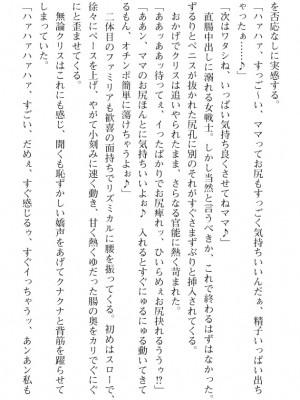 を否応なしに実感する。
「ハァハァ、すっごーい、ママってお尻もすっごく気持ちいいんだぁ、精子いっぱい出ち
ゃったぁ……」
「次はワタシね、いっぱい気持ち良くさせてねママ♪」
直腸中出しに溺れる女戦士。しかし当然と言うべきか、これで終わるはずはなかった。
ずるりとペニスが抜かれた尻孔に別のそれがすぐさまずぶりと挿入されてくる。
おかげでクリスは追いやられたまま、さらなる官能に熱く苛まれた。
「あああっ、あああっ待ってぇ、イったばかりでお尻痺れっ、ひいらめぇお尻抉れるううぅ!?」
「あああン、ママのお尻ほんとに気持ちいいよぉ♪　入れるとすぐにゅるにゅる動いてきて
るもん、オチンポ簡単に蕩けちゃうよぉ♪」
二体目のファミリアも歓喜の面持ちでリズミカルに腰を振ってくる。初めはスローで、
徐々にペースを上げ、やがて小刻みに速く動き、甘く熱くゆだった腸の奥をカリでぐにぐ
にと歪ませてくる。
無論クリスはこれにも感じ、聞くも恥ずかしい嬌声をあげてクナクナと背筋を躍らせて
しまっていた。
「ハァハァハァハァ、すごい、だめぇ、すぐ感じるぅ、すぐイっちゃうッ、あんあん私も